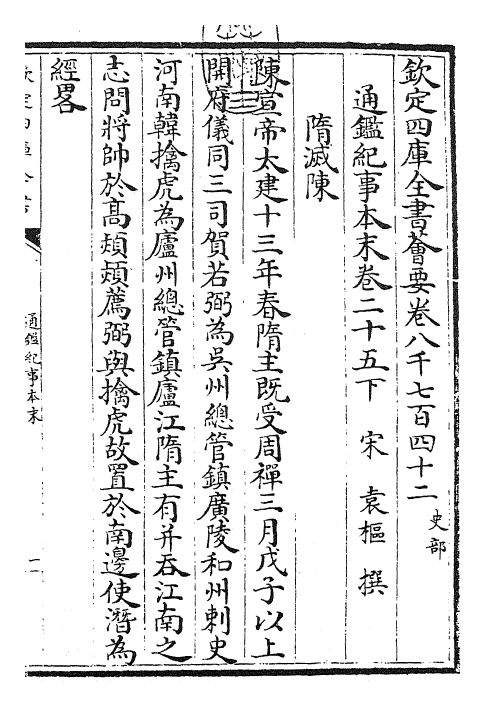 欽定四庫全書薈要卷八千七百四十二
史部
通鑑紀事本末卷二十五下　宋　袁樞　撰
隋滅陳
陳宣帝太建十三年春隋主既受周禪三月戊子以上
開府儀同三司賀若弼為吳州總管鎮廣陵和州刺史
河南韓擒虎為廬州總管鎮廬江隋主有并吞江南之
志問將帥於髙熲熲薦弼與擒虎故置於南邊使潛為
經畧
通鑑紀事本末